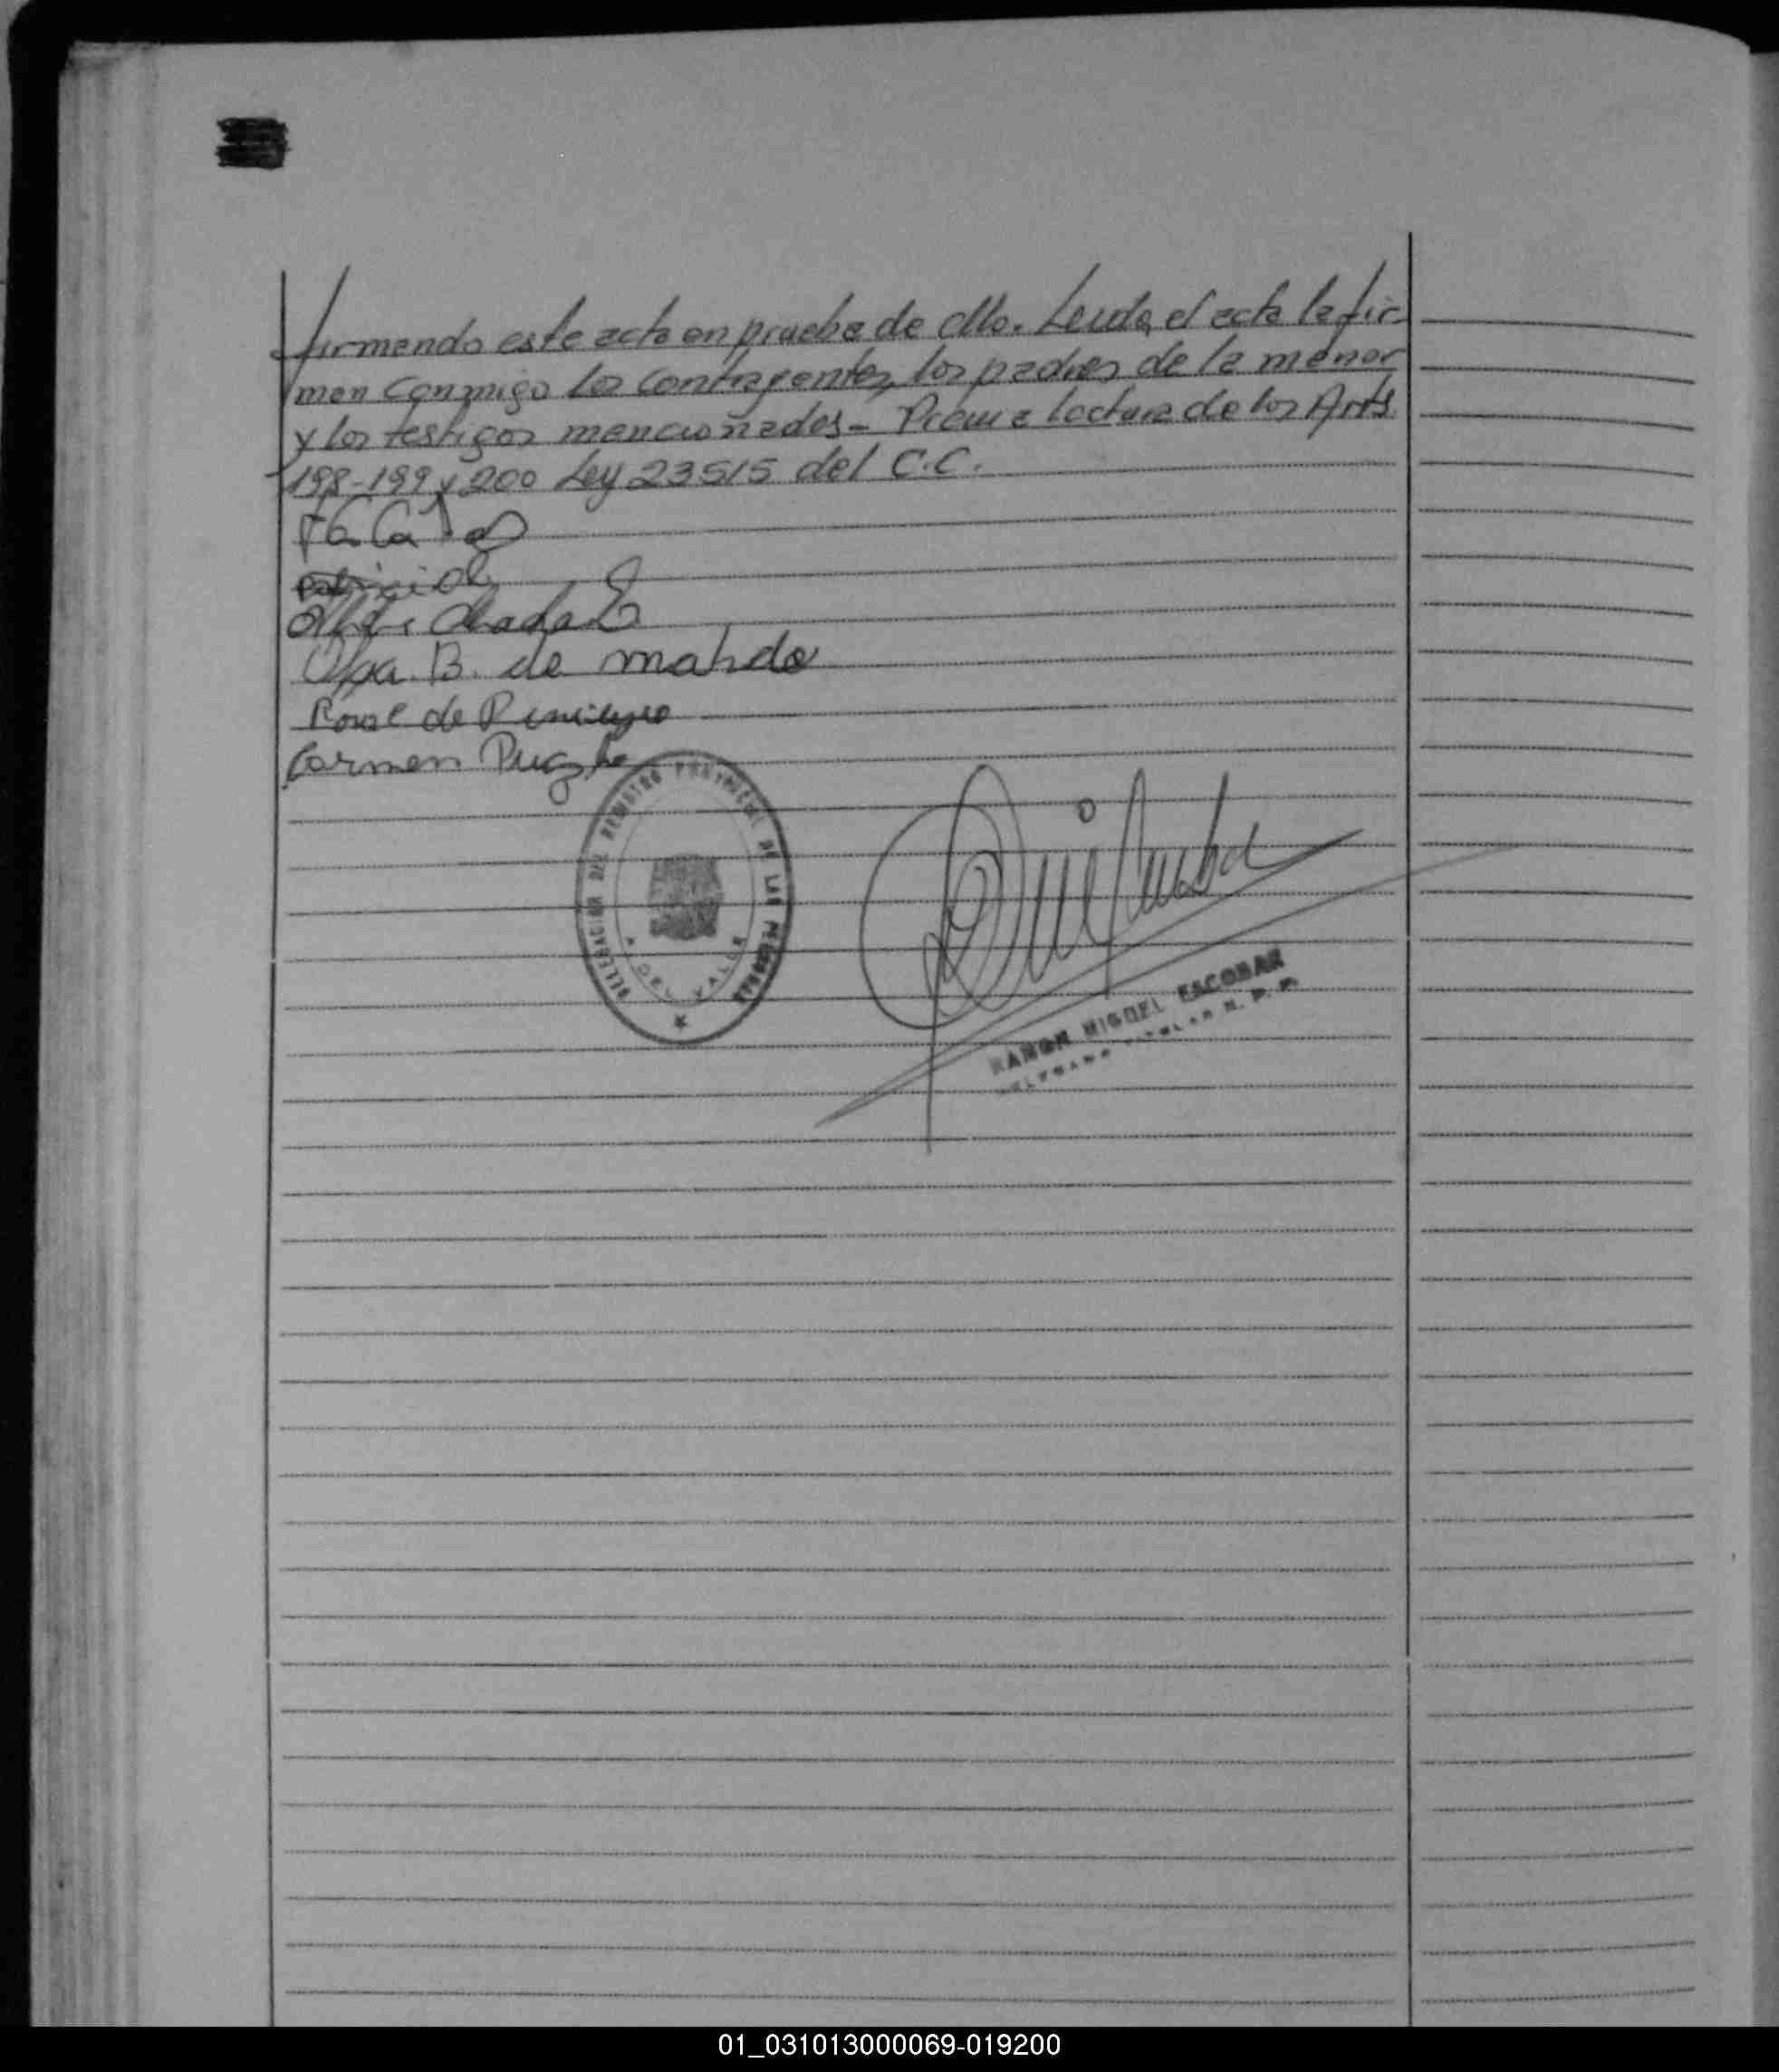 firmando este acto en prueba de ello. Leida el acta la fir-
man conmigo los contrayentes, los padres de la menor
y los testigos mencionados - Previa lectura de los Arts
198-199 y 200 Ley 23515 del C.C.
Olga. B. de
de
Carmen
DELEGACION DEL REGISTRO PROVINCIAL DE LAS PERSONAS
A. DEL VALLE
RAMON MIGUEL ESCOBAR
01_031013000069-019200